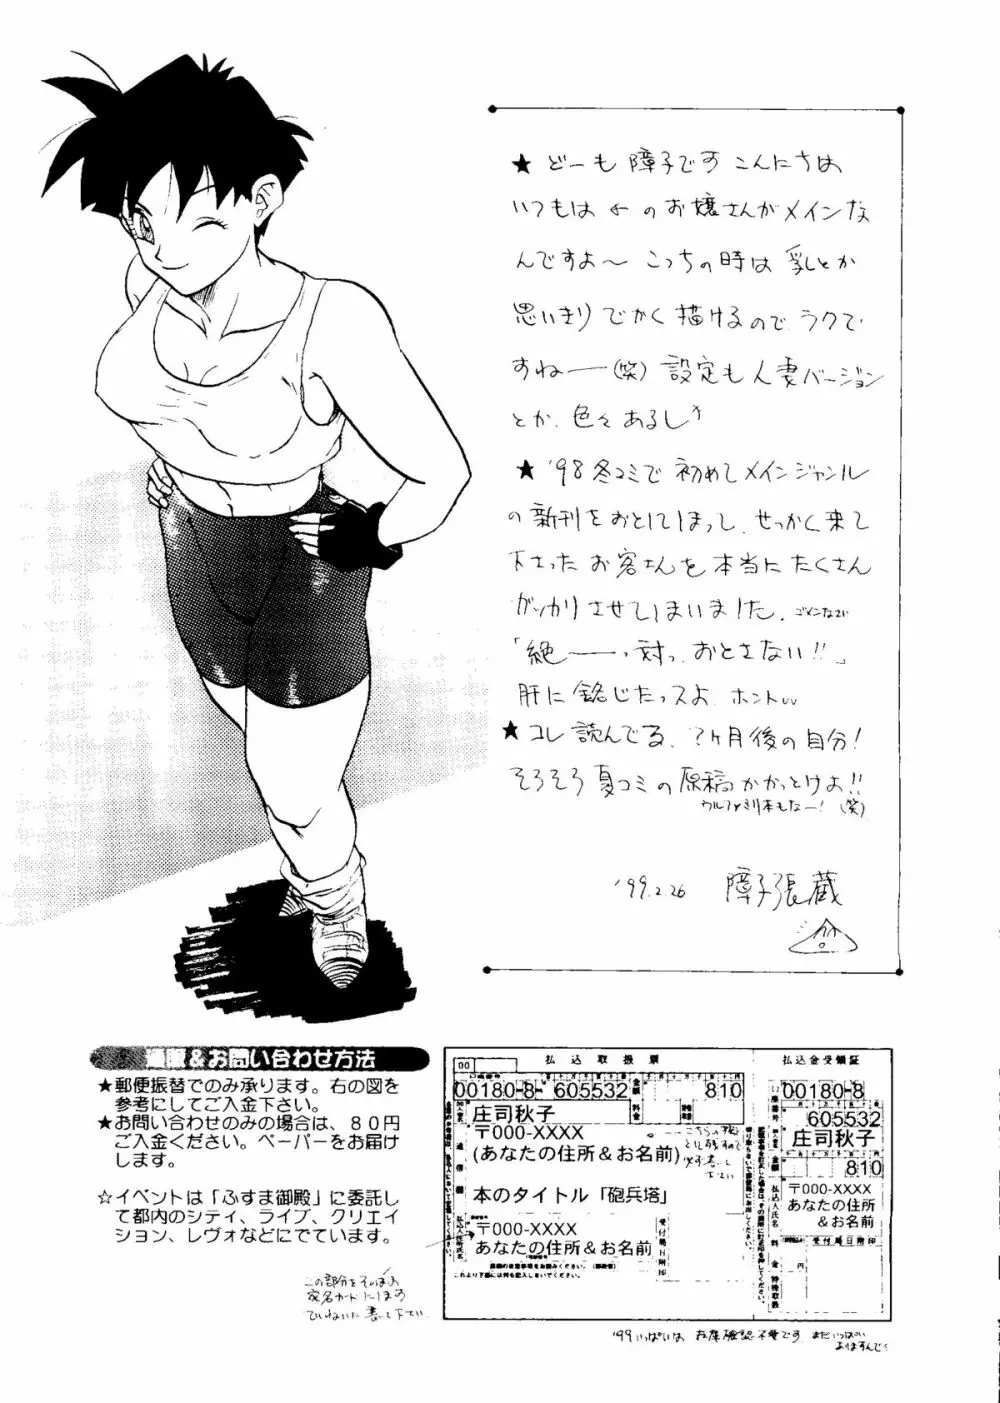 ★どーも 障子です こんにちは
いつもは の お嬢さんがメインな
んですよ〜 こっちの時は 乳とか
思いきり でかく描けるので、ラクで
すねー(笑) 設定も人妻バージョン
とか、色々あるし
★'98冬コミで 初めてメインジャンル
の新刊をおとしてしまって、せっかく来て
下さった お客さんを 本当に たくさん
ガッカリ させてしまいました。 ゴメンなさい
「絶ーっ対っ おとさない!!」
肝に銘じたっスよ ホント
★コレ読んでる、?ヶ月後の自分!
そろそろ 夏コミの 原稿 かかっとけよ!!
ウルファミリ本もなー! (笑)
'99.2.26 障子張蔵
通販&お問い合わせ方法
★郵便振替でのみ承ります。右の図を
参考にしてご入金下さい。
★お問い合わせのみの場合は、80円
ご入金ください。ペーパーをお届け
します。
☆イベントは「ふすま御殿」に委託し
て都内のシティ、ライブ、クリエイ
ション、レヴォなどにでています。
この部分をそのまま
宛名カードにします
ていねいに書いて下さい
払込取扱票
00
00180-8-605532
金額
810
料金
庄司秋子
〒000-XXXX
(あなたの住所&お名前)
本のタイトル「砲兵塔」
〒000-XXXX
あなたの住所&お名前
受付局日附印
これより下部には何も記入しないでください。
払込金受領証
00180-8
605532
庄司秋子
金額
810
〒000-XXXX
あなたの住所
&お名前
料金
受付局日附印
円
特殊取扱
'99いっぱいは 在庫確認不要です まだいっぱい